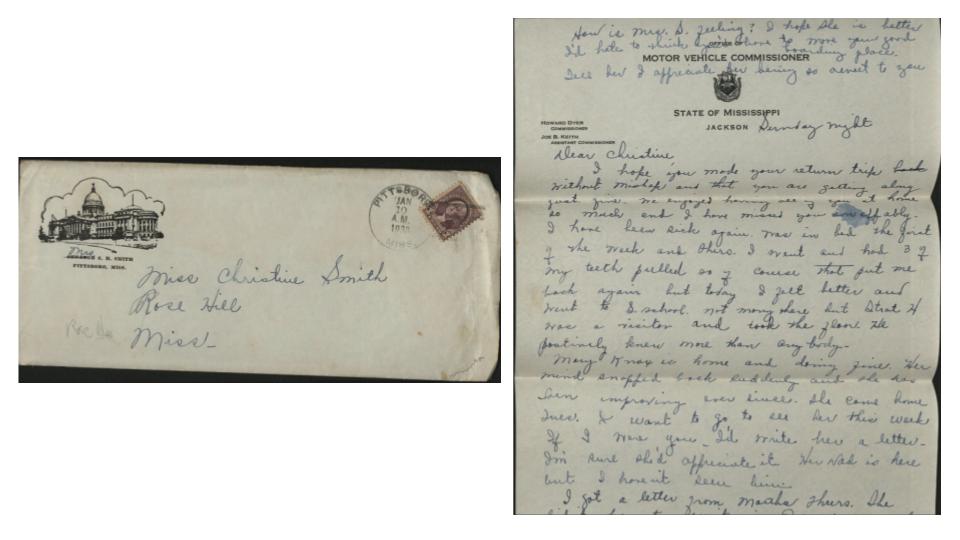 Mrs.
SENATOR C. R. SMITH
PITTSBORO, MISS.
PITTSBORO
JAN
10
A.M.
MISS.
Miss Christine Smith
Rose Hill
Miss.
How is Mrs. D. feeling? I hope she is better
I'd hate to think you'd have to move your good
boarding place.
Tell her I appreciate her being so sweet to you
OFFICE OF
MOTOR VEHICLE COMMISSIONER
STATE OF MISSISSIPPI
JACKSON Sunday night
HOWARD DYER
COMMISSIONER
JOE B. KEITH
ASSISTANT COMMISSIONER
Dear Christine,
I hope you made your return trip back
without mishap and that you are getting along
just fine. We enjoyed having you at home
so much and I have missed you
I have been sick again. was in bed the first
of the week and thurs. I went and had 3 of
my teeth pulled so of course that put me
back again but today I felt better and
went to S. school. not many there but Strat H
was a visitor and took the floor He
positively knew more than any body.
Mary Knox is home and doing fine. Her
mind snapped back suddenly and she has
been improving ever since. She came home
Tues. I want to go to see her this week
If I were you I'd write her a letter.
I'm sure she'd appreciate it Her Dad is here
but I haven't seen him.
I got a letter from Martha thurs. She